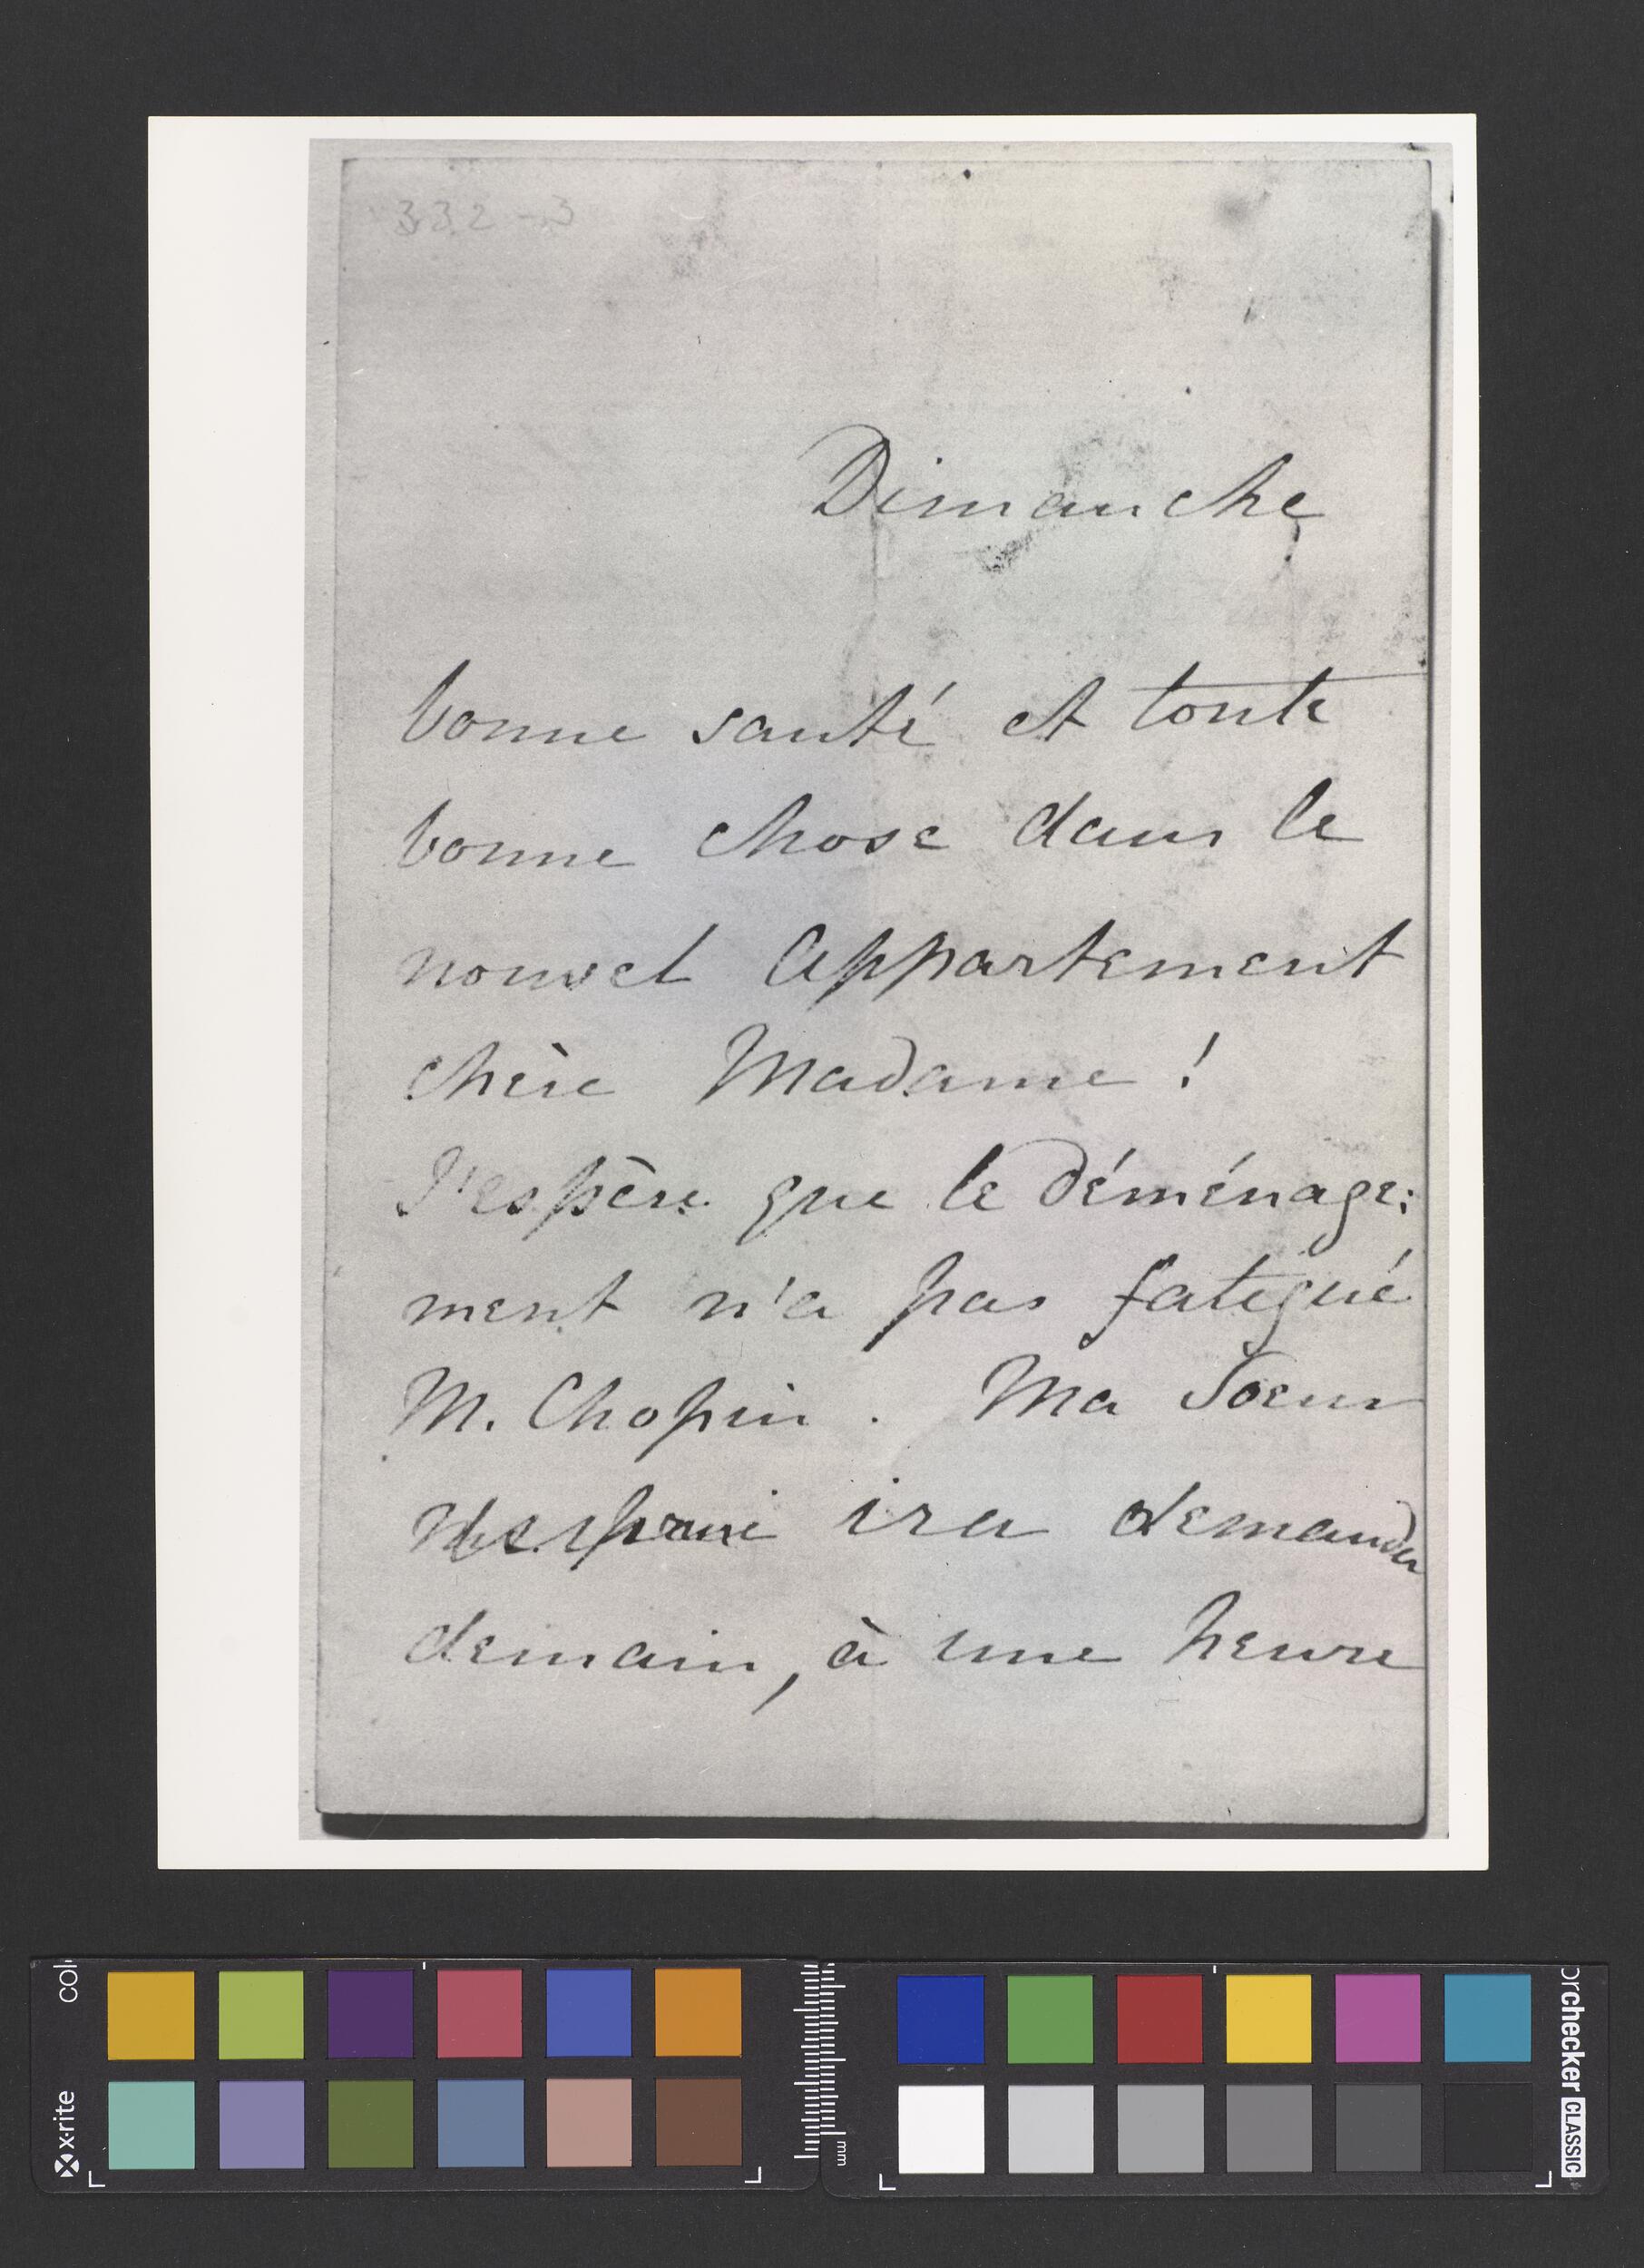 332-3
Dimanche
bonne santé et toute
bonne chose dans le
nouvel appartement
chère Madame !
J'espère que le déménage:
ment n'a pas fatigué
M. Chopin. Ma Soeur
ira demander
demain, à une heure
x-rite
col
mm
orchecker CLASSIC